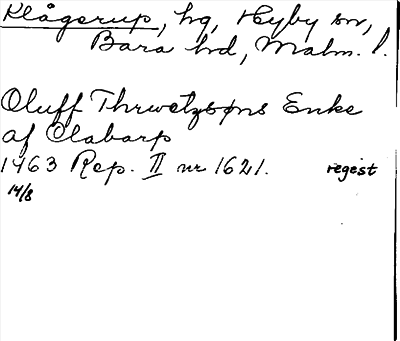 Klågerup, hg, Hyby sn,
Bara hd, Malm. l.
Oluff Thrwetzsøns Enke
af Clabarp
1463 Rep. II nr 1621. regest
14/8